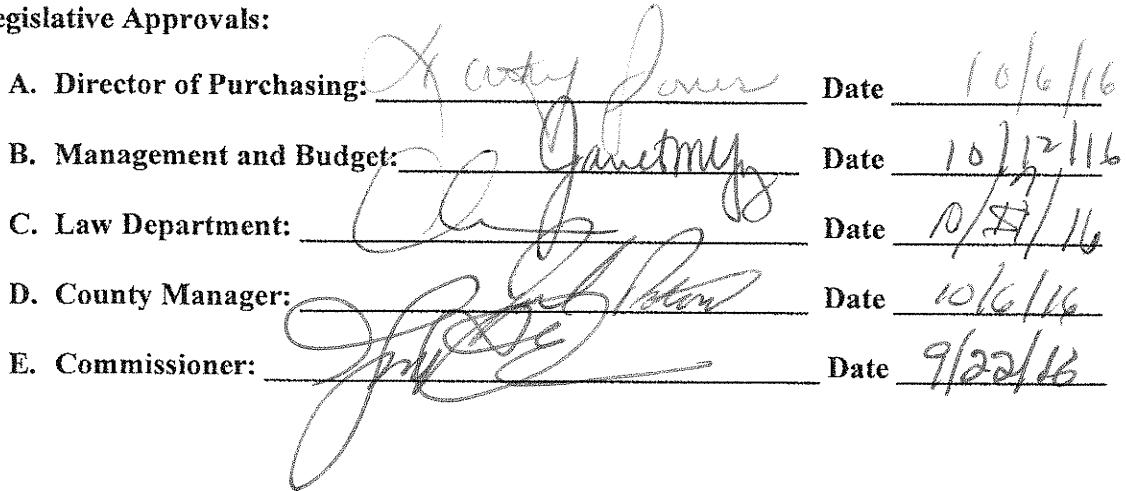 egislative Approvals:
A. Director of Purchasing: Jones Date 10/6/16
B. Management and Budget: Date 10/12/16
C. Law Department: Date
D. County Manager: Date 10/6/16
E. Commissioner: Date 9/22/16